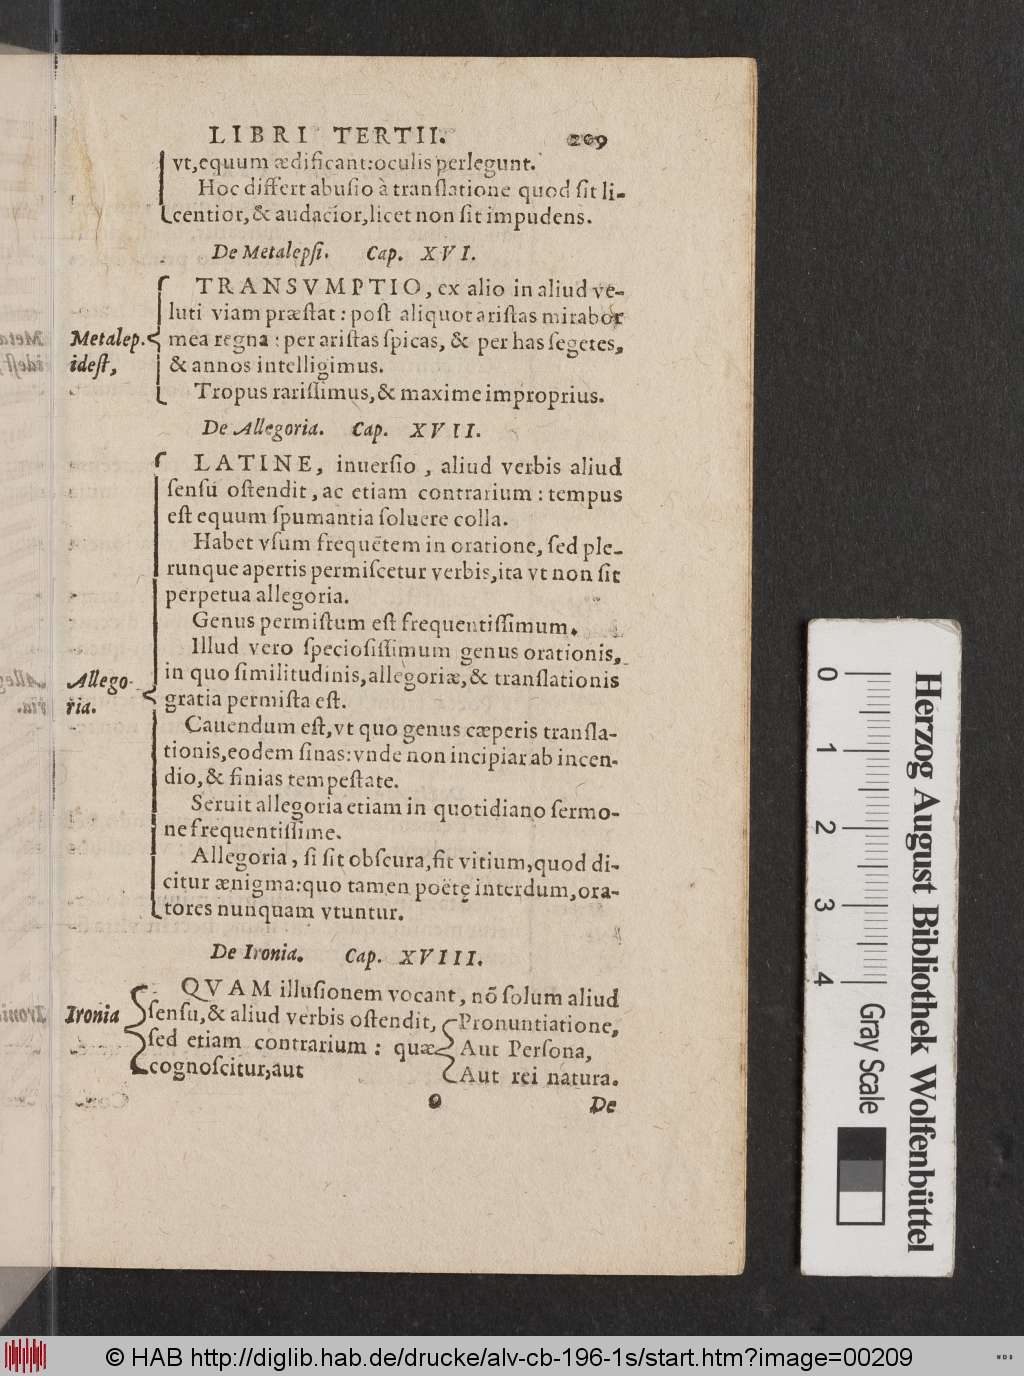 LIBRI TERTII. 209
vt, equum ædificant: oculis perlegunt.
Hoc differt abusio à translatione quod sit li-
centior, & audacior, licet non sit impudens.
De Metalepsi. Cap. XVI.
TRANSVMPTIO, ex alio in aliud ve-
luti viam præstat: post aliquot aristas mirabor
Metalep. mea regna: per aristas spicas, & per has segetes,
idest, & annos intelligimus.
Tropus rarissimus, & maxime improprius.
De Allegoria. Cap. XVII.
LATINE, inuersio, aliud verbis aliud
sensu ostendit, ac etiam contrarium: tempus
est equum spumantia soluere colla.
Habet vsum frequētem in oratione, sed ple-
runque apertis permiscetur verbis, ita vt non sit
perpetua allegoria.
Genus permistum est frequentissimum.
Illud vero speciosissimum genus orationis,
Allego- in quo similitudinis, allegoriæ, & translationis
ria. gratia permista est.
Cauendum est, vt quo genus cæperis transla-
tionis, eodem sinas: vnde non incipiar ab incen-
dio, & finias tempestate.
Seruit allegoria etiam in quotidiano sermo-
ne frequentissime.
Allegoria, si sit obscura, fit vitium, quod di-
citur ænigma: quo tamen poëtę interdum, ora-
tores nunquam vtuntur.
De Ironia. Cap. XVIII.
QVAM illusionem vocant, nō solum aliud
Ironia sensu, & aliud verbis ostendit, Pronuntiatione,
sed etiam contrarium: quæ Aut Persona,
cognoscitur, aut Aut rei natura.
O De
0 1 2 3 4
Gray Scale
Herzog August Bibliothek Wolfenbüttel
© HAB http://diglib.hab.de/drucke/alv-cb-196-1s/start.htm?image=00209